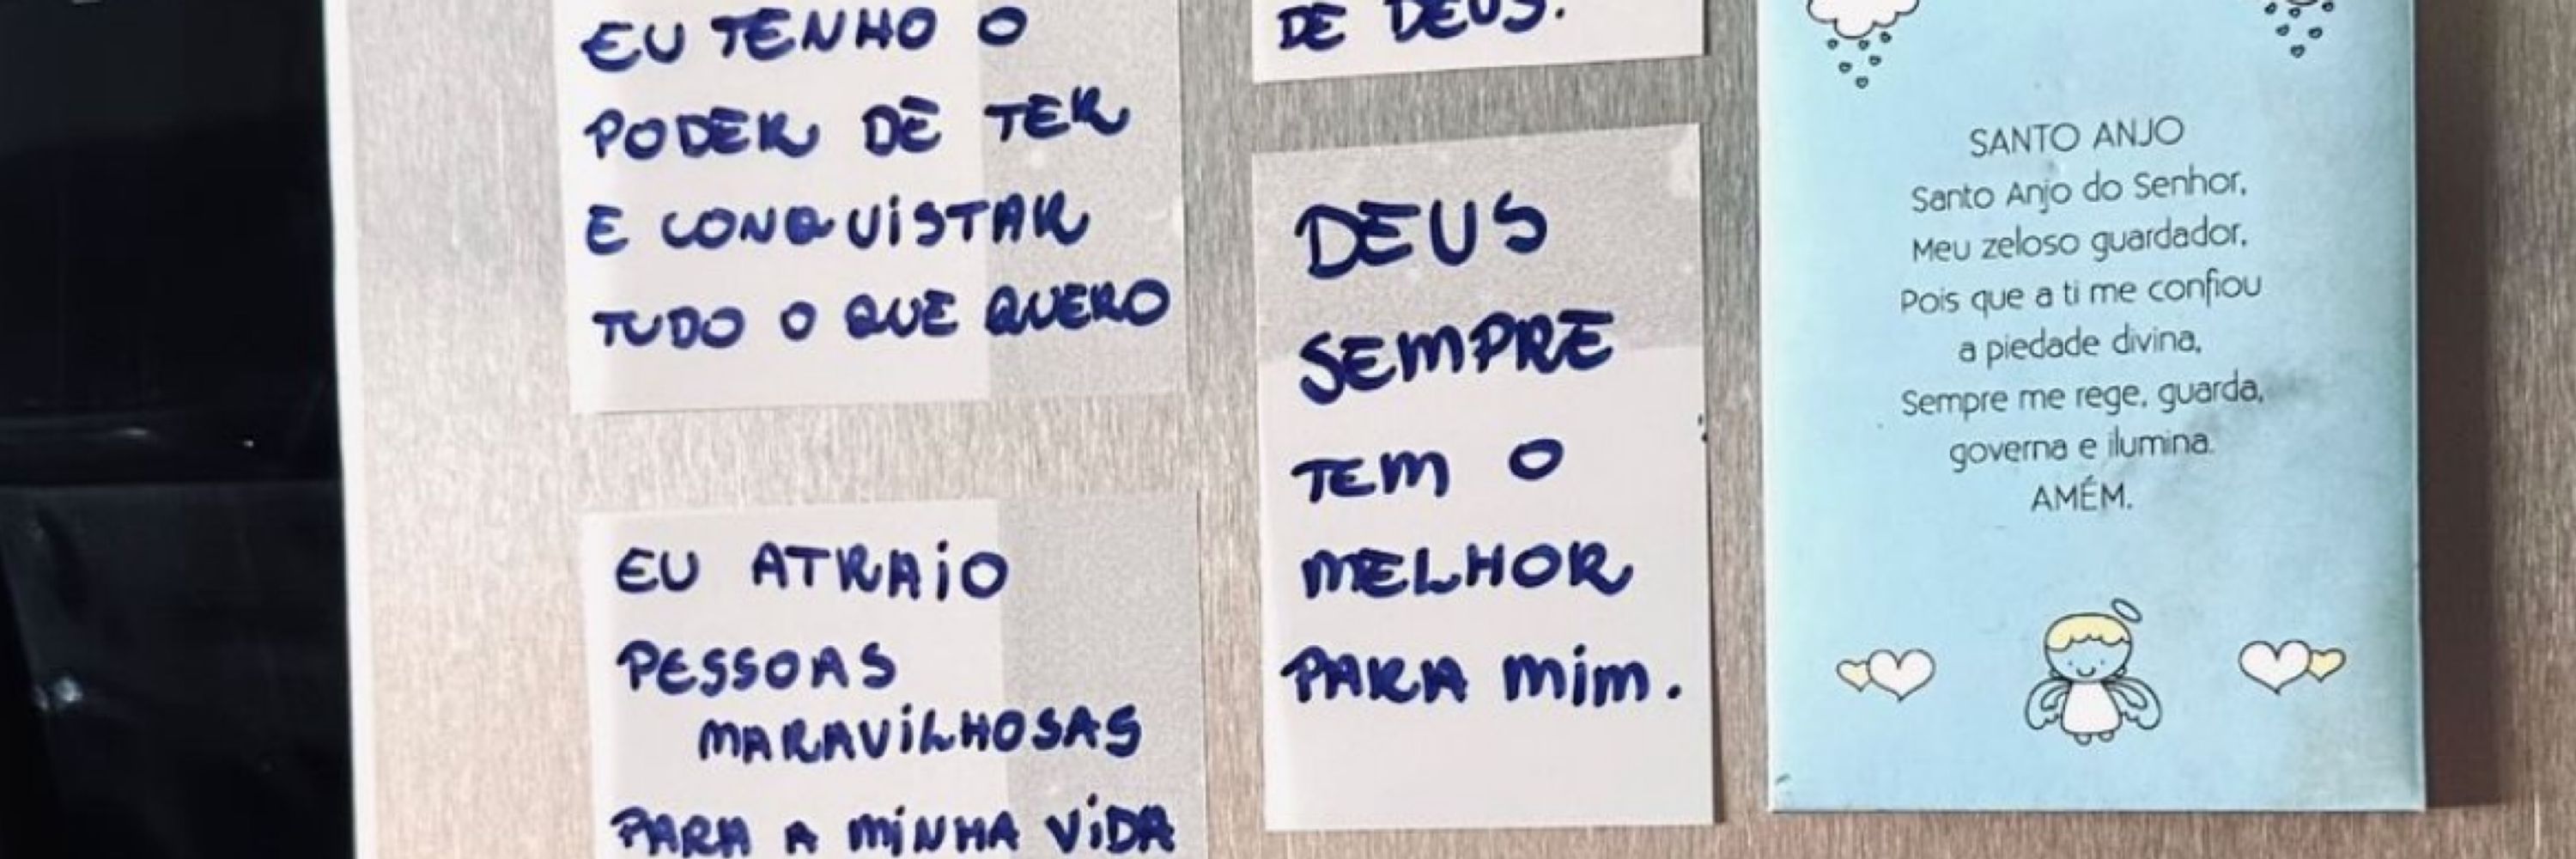 EU TENHO O
PODER DE TER
E CONQUISTAR
TUDO O QUE QUERO
EU ATRAIO
PESSOAS
MARAVILHOSAS
PARA A MINHA VIDA
DE DEUS.
DEUS
SEMPRE
TEM O
MELHOR
PARA MIM.
SANTO ANJO
Santo Anjo do Senhor,
Meu zeloso guardador,
Pois que a ti me confiou
a piedade divina,
Sempre me rege, guarda,
governa e ilumina.
AMÉM.